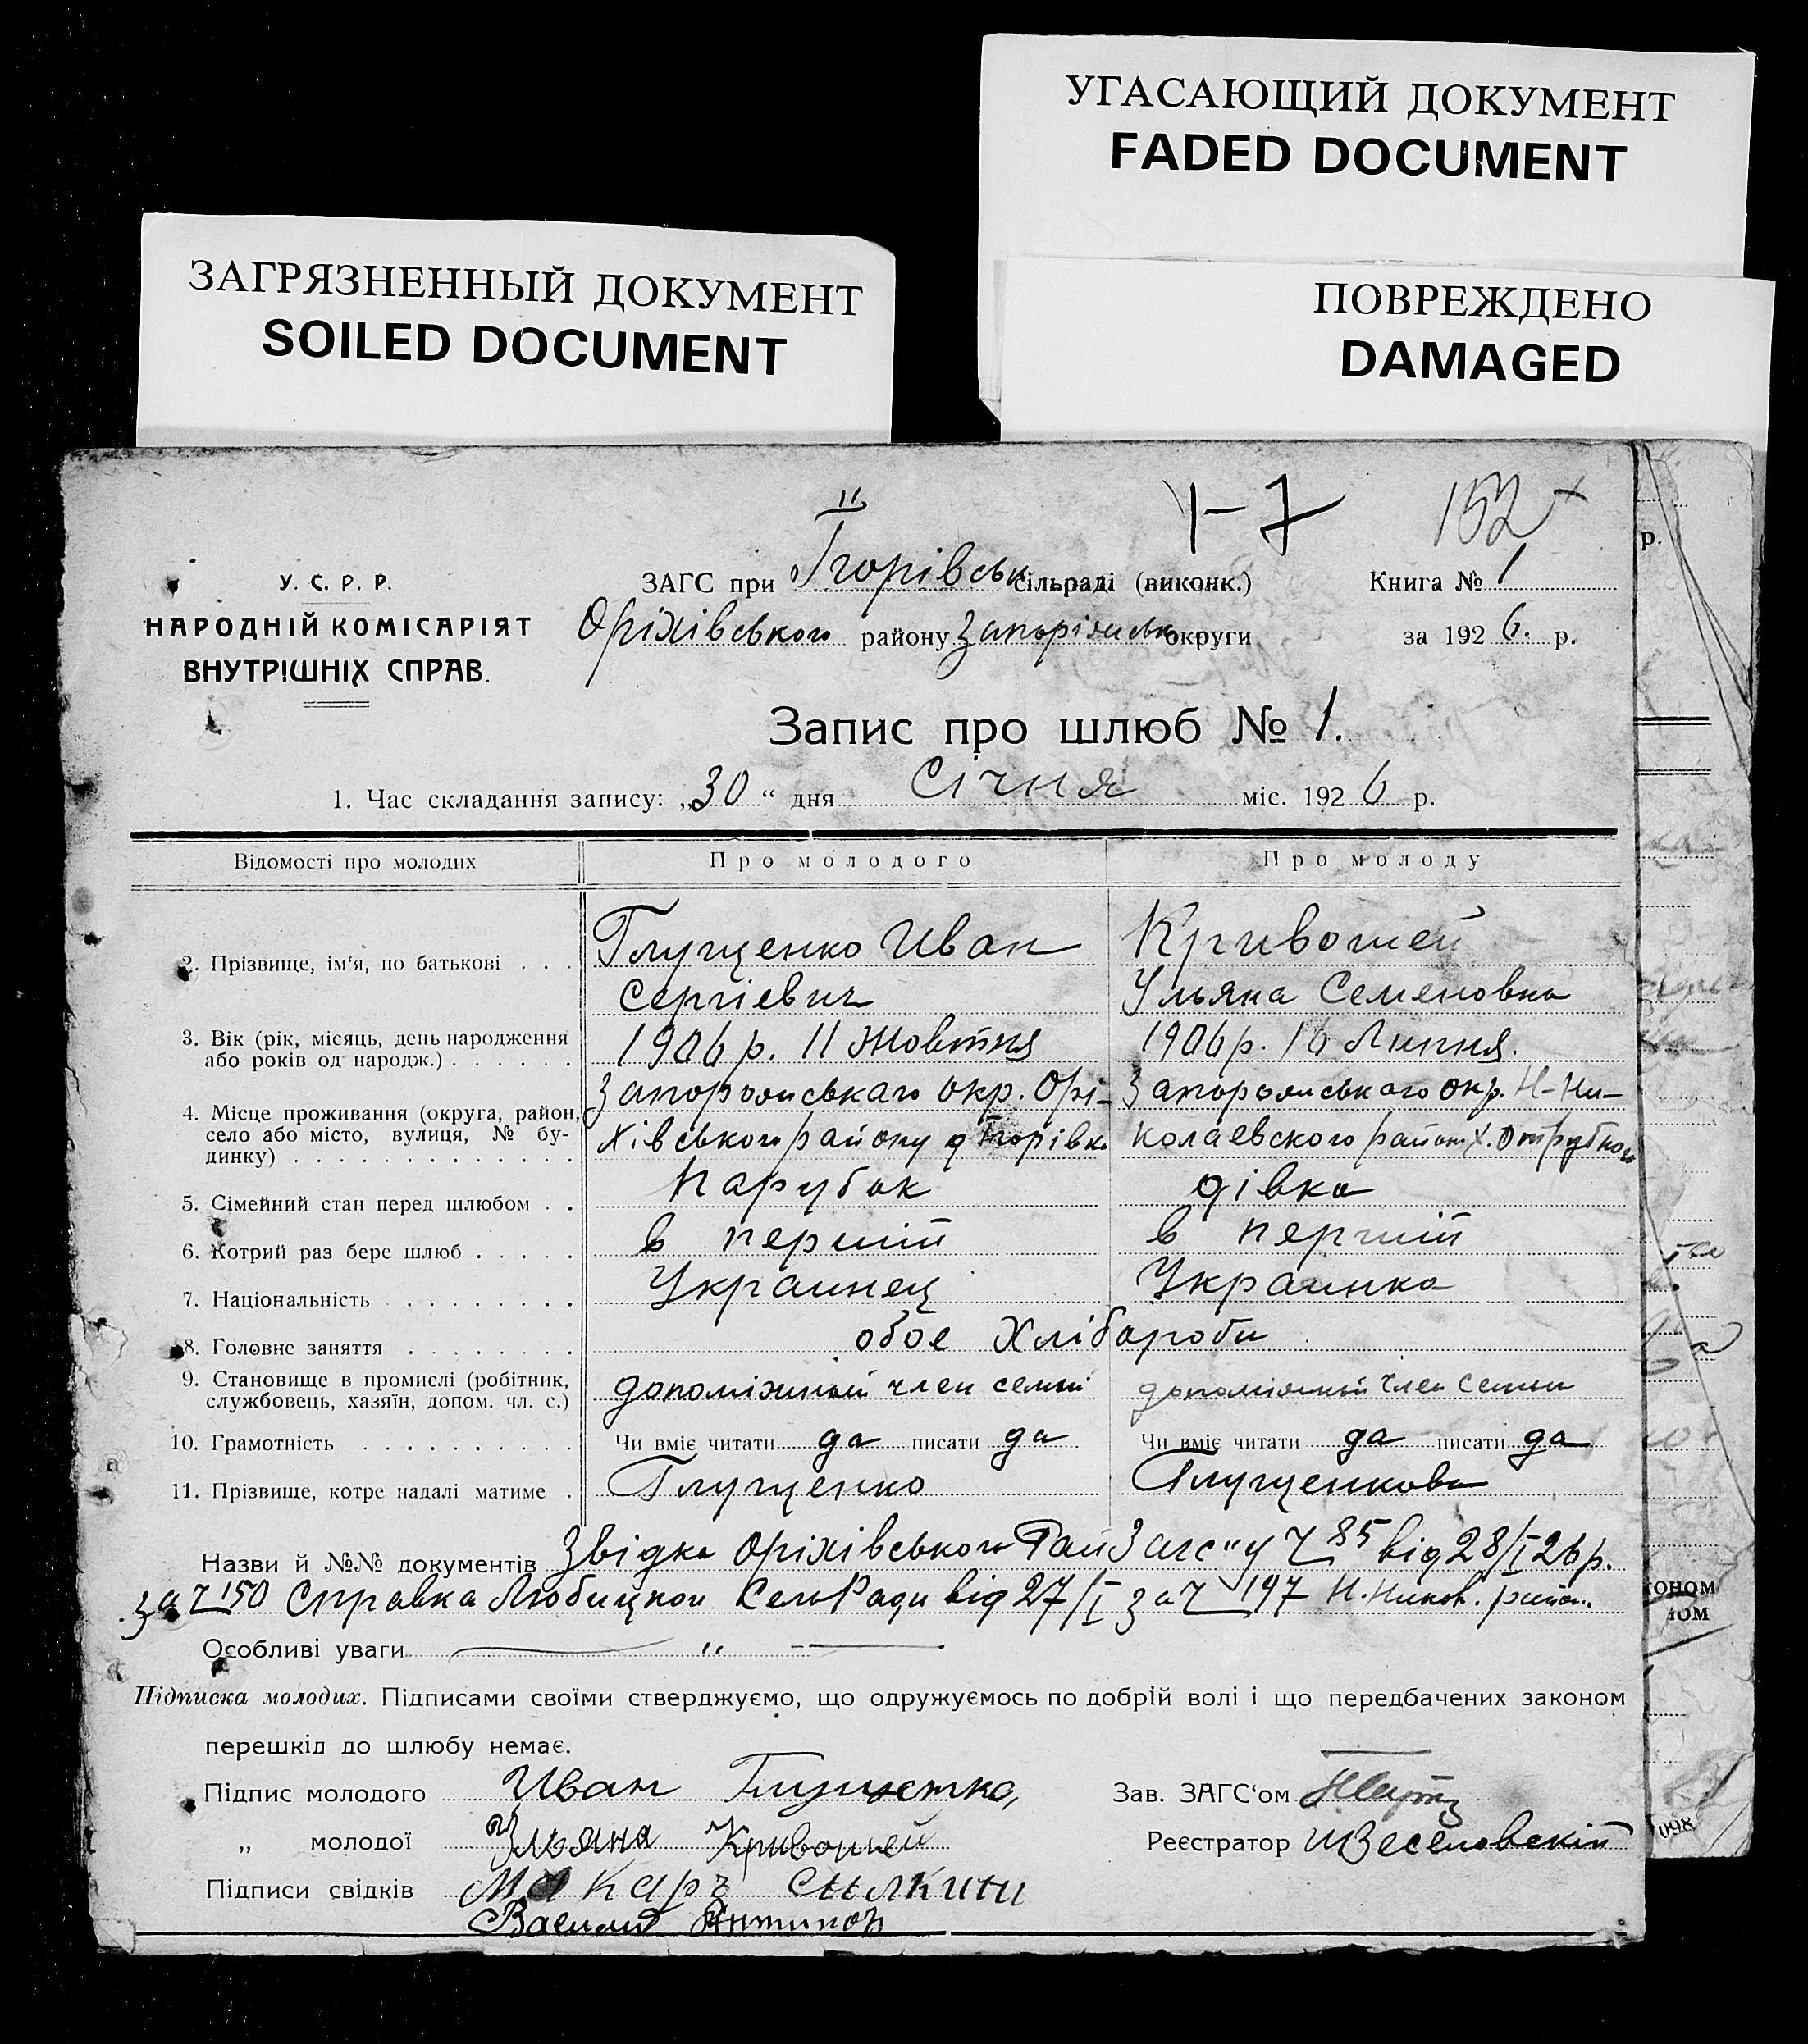 УГАСАЮЩИЙ ДОКУМЕНТ
FADED DOCUMENT
ЗАГРЯЗНЕННЫЙ ДОКУМЕНТ
SOILED DOCUMENT
ПОВРЕЖДЕНО
DAMAGED
1-7
152
У. С. Р. Р.
НАРОДНІЙ КОМІСАРІЯТ
ВНУТРІШНІХ СПРАВ.
ЗАГС при Ігорівськ сільраді (виконк.) Книга № 1
Оріхівського району Запоріжськ округи за 1926. р.
Запис про шлюб № 1.
1. Час складання запису: „30“ дня Січня міс. 1926 р.
Відомості про молодих Про молодого Про молоду
2. Прізвище, ім‘я, по батькові . . . Глущенко Иван Кривошей
Сергіевич Ульяна Семеновна
3. Вік (рік, місяць, день народження 1906 р. 11 Жовтня 1906 р. 16 Липня.
або років од народж.) . . . . . .
Запорожськаго окр. Орі- Запорожськаго окр. Н-Ни-
4. Місце проживання (округа, район,
село або місто, вулиця, № бу- хівського району д Ігорівка колаевского район х. Отрубного
динку) . . . . . . . . . . . . .
5. Сімейний стан перед шлюбом . . Парубок дівка
6. Котрий раз бере шлюб . . . . . в перший в перший
7. Національність . . . . . . . . . Украинец Украинка
8. Головне заняття . . . . . . . . обое Хлібароби
9. Становище в промислі (робітник, допоміжний член семьи допоміжний член семьи
службовець, хазяїн, допом. чл. с.)
10. Грамотність . . . . . . . . . . Чи вміє читати да писати да Чи вміє читати да писати да
11. Прізвище, котре надалі матиме . Глущенко Глущенкова
Назви й №№ документів Звідка Оріхівського РайЗагс"у Ч 85 від 28/I 26 р.
за Ч 150 Справка Любицкои СельРади від 27/I за Ч 197 Н. Никол. район.
Особливі уваги "
Підписка молодих. Підписами своїми стверджуємо, що одружуємось по добрій волі і що передбачених законом
перешкід до шлюбу немає.
Підпис молодого Иван Зав. ЗАГС‘ом
„ молодої Ульяна Кривошей Реєстратор Веселовскій
Підписи свідків Макаръ
Василий Антипов
р.
ОНОМ
ОМ
098